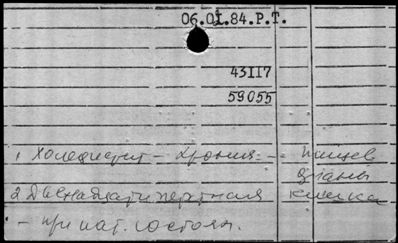 06.01.84.Р.Т.
43117
59055
1 Холецистит – Хрония. – Пищев
2 Двенадцатиперстная кишка
– при пат. состоян.